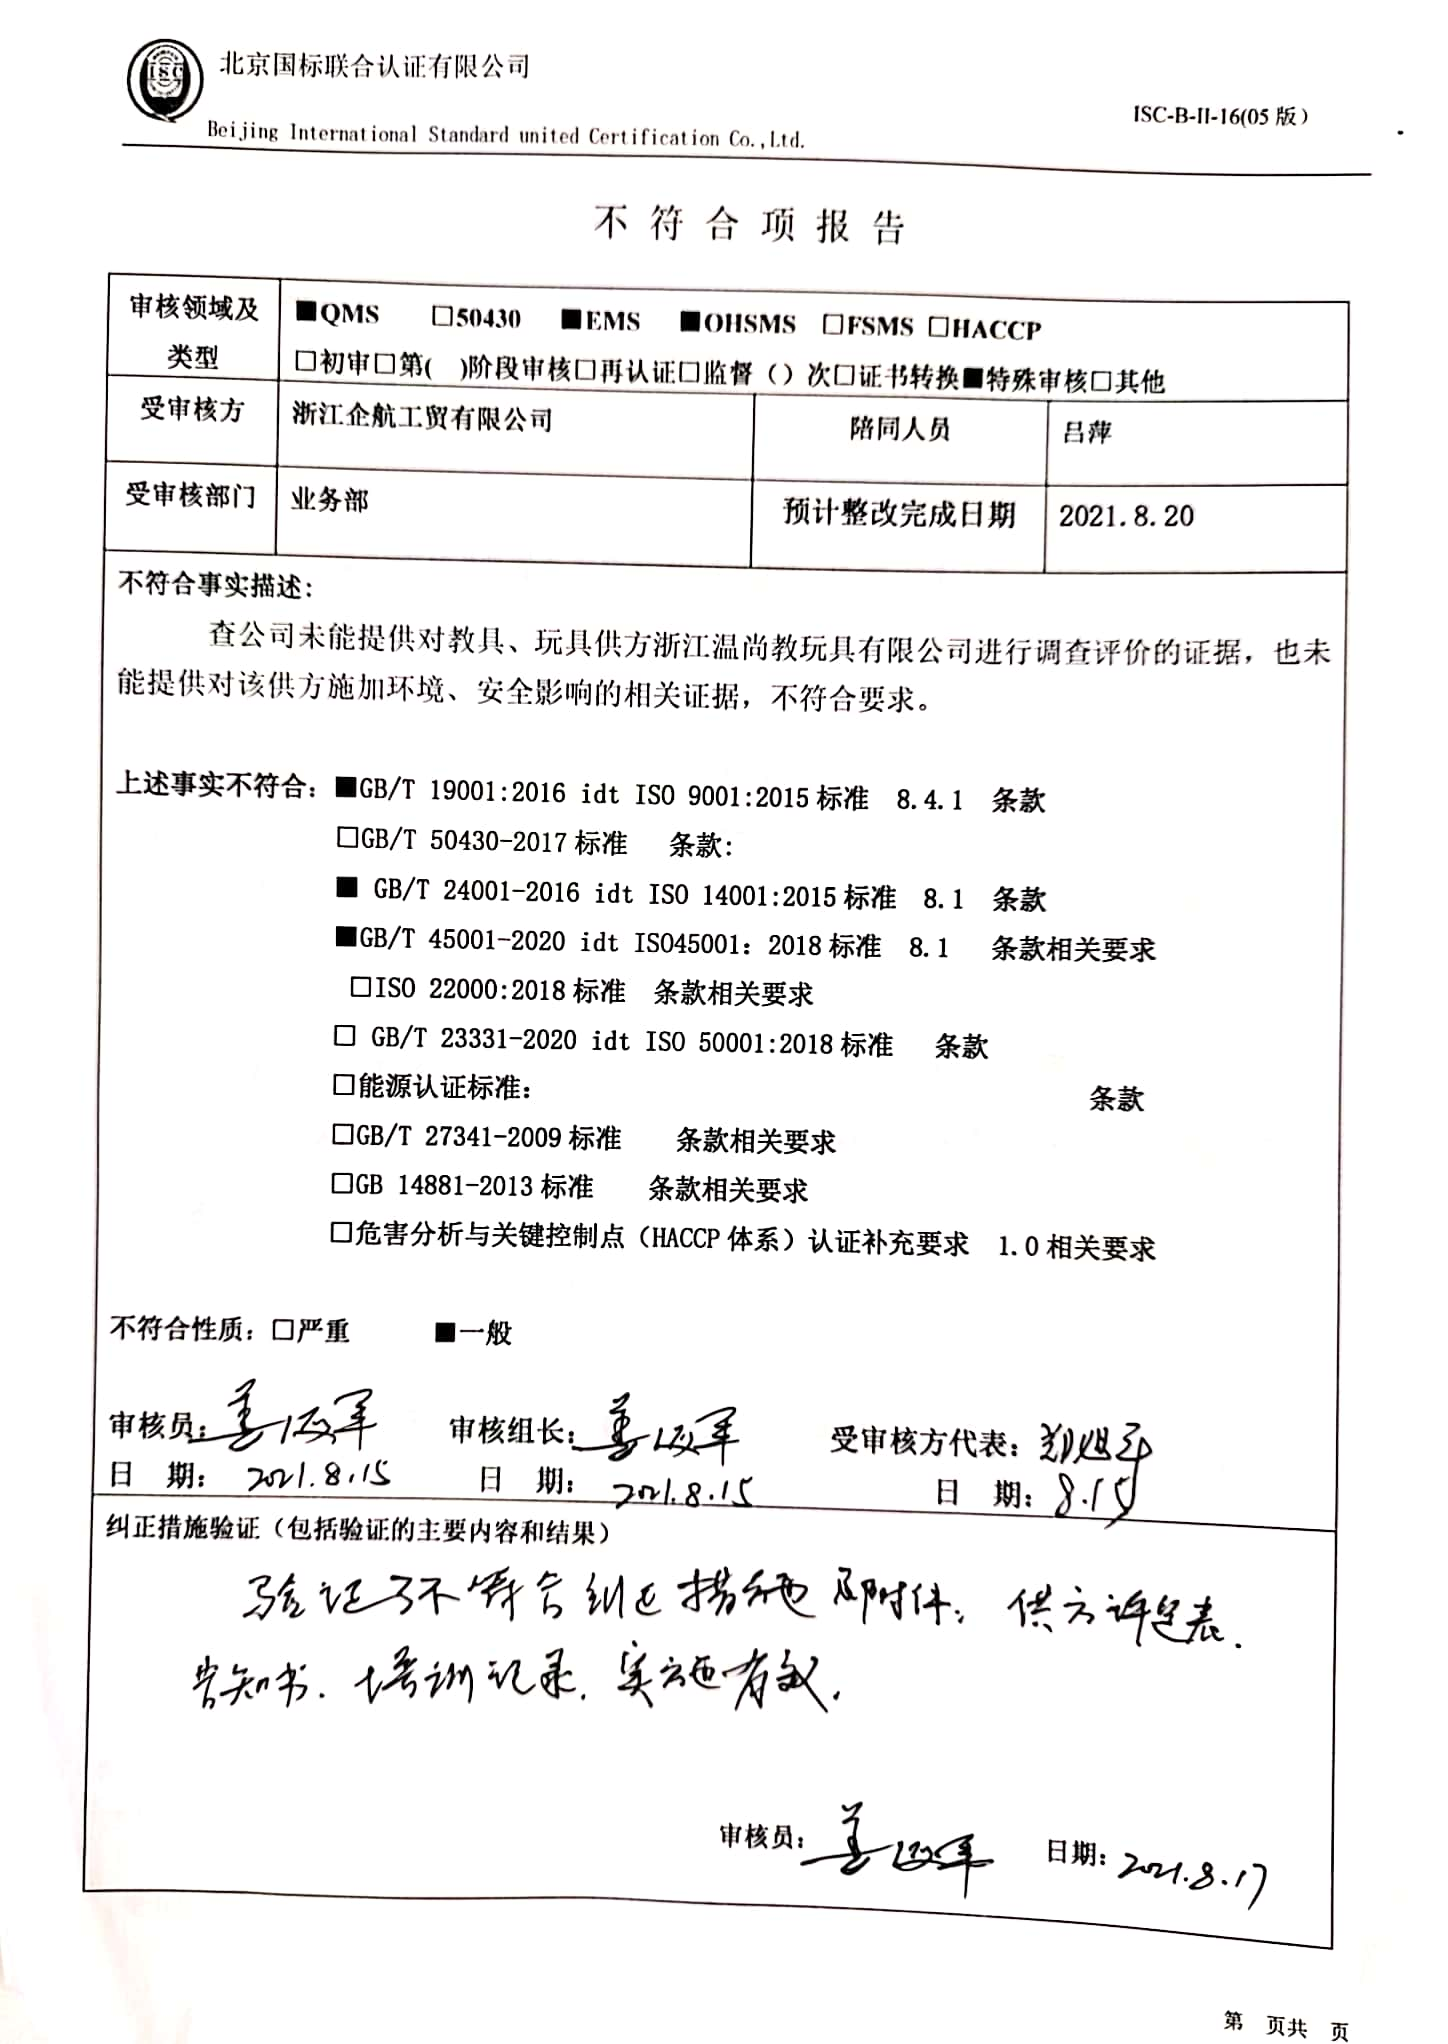 ISC
北京国标联合认证有限公司
ISC-B-II-16(05 版)
Beijing International Standard united Certification Co.,Ltd.
不 符 合 项 报 告
审核领域及类型
■QMS □50430 ■EMS ■OHSMS □FSMS □HACCP
□初审□第( )阶段审核□再认证□监督（）次□证书转换■特殊审核□其他
受审核方 浙江企航工贸有限公司 陪同人员 吕萍
受审核部门 业务部 预计整改完成日期 2021.8.20
不符合事实描述:
查公司未能提供对教具、玩具供方浙江温尚教玩具有限公司进行调查评价的证据，也未
能提供对该供方施加环境、安全影响的相关证据，不符合要求。
上述事实不符合：■GB/T 19001:2016 idt ISO 9001:2015 标准 8.4.1 条款
□GB/T 50430-2017 标准 条款:
■ GB/T 24001-2016 idt ISO 14001:2015 标准 8.1 条款
■GB/T 45001-2020 idt ISO45001：2018 标准 8.1 条款相关要求
□ISO 22000:2018 标准 条款相关要求
□ GB/T 23331-2020 idt ISO 50001:2018 标准 条款
□能源认证标准： 条款
□GB/T 27341-2009 标准 条款相关要求
□GB 14881-2013 标准 条款相关要求
□危害分析与关键控制点（HACCP 体系）认证补充要求 1.0 相关要求
不符合性质：□严重 ■一般
审核员: 审核组长: 受审核方代表:
日 期: 2021.8.15 日 期: 2021.8.15 日 期: 8.15
纠正措施验证（包括验证的主要内容和结果）
验证了不符合纠正措施及附件：供方评定表、
告知书、培训记录，实施有效。
审核员: 日期: 2021.8.17
第 页共 页